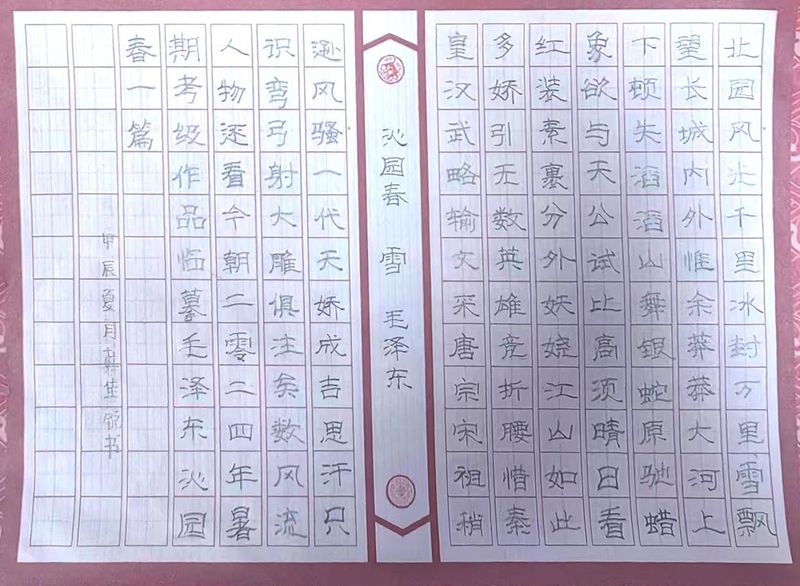 北园风光千里冰封万里雪飘
望长城内外惟余莽莽大河上
下顿失滔滔山舞银蛇原驰蜡
象欲与天公试比高须晴日看
红装素裹分外妖娆江山如此
多娇引无数英雄竞折腰惜秦
皇汉武略输文采唐宗宋祖稍
沁园春 雪 毛泽东
逊风骚一代天娇成吉思汗只
识弯弓射大雕俱往矣数风流
人物还看今朝二零二四年暑
期考级作品临摹毛泽东沁园
春一篇
甲辰夏月韩佳锐书